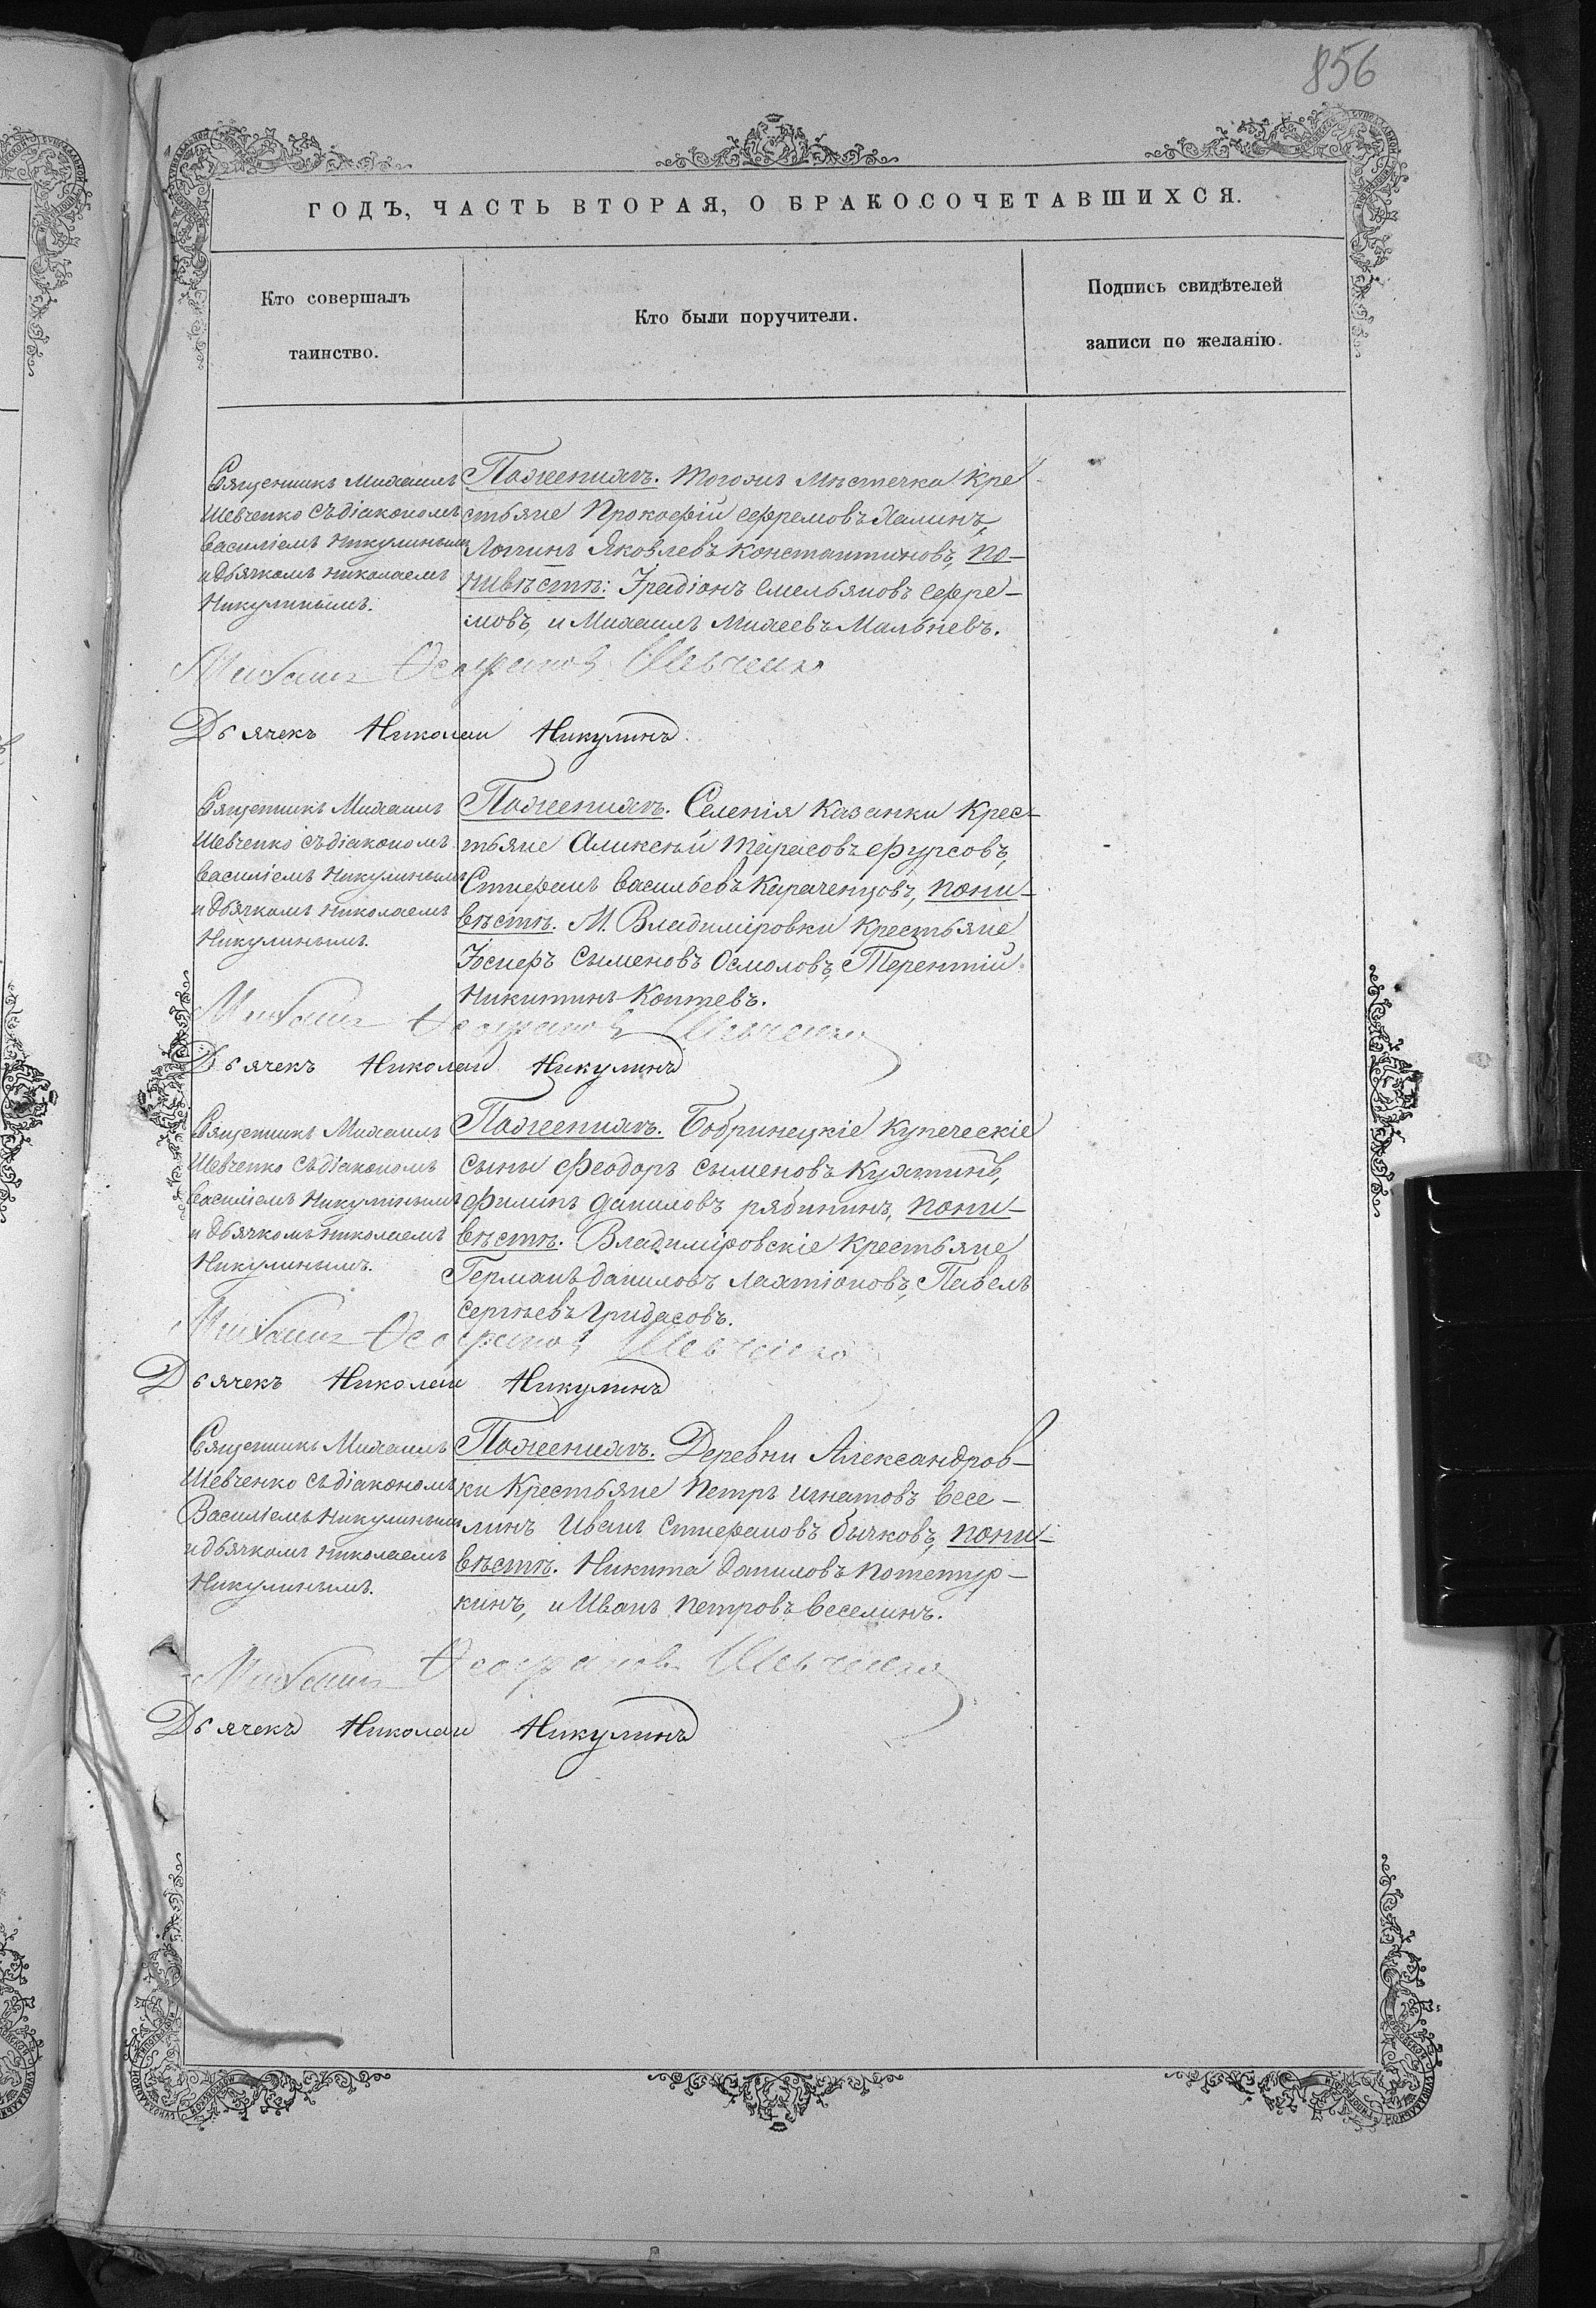 856
ГОДЪ, ЧАСТЬ ВТОРАЯ, О БРАКОСОЧЕТАВШИХСЯ.
Кто совершалъ
таинство.
Кто были поручители.
Подпись свидѣтелей
записи по желанію.
Священникъ Михаилъ
Шевченко съ діакономъ
Василіемъ Никулинымъ
и дьячкомъ Николаемъ
Никулинымъ.
По женихѣ. Тогоже мѣстечка кре
стьяне Прокофій Ефремовъ
Логинъ Яковлевъ Константиновъ, по
невѣстѣ: Родіонъ Емельяновъ Ефре-
мовъ, и Михаилъ Михеевъ Мальневъ.
Михаилъ Ѳеофановъ Шевченко
Дьячекъ Николай Никулинъ
Священникъ Михаилъ
Шевченко съ діакономъ
Василіемъ Никулинымъ
и дьячкомъ Николаемъ
Никулинымъ.
По женихѣ. Селенія Казанки крес-
тьяне Алексѣй Тарасовъ Фурсовъ,
Стефанъ Васильевъ Караченцовъ, по не-
вѣстѣ. М. Владиміровки крестьяне
Іосифъ Сыменовъ Осмоловъ, Терентій
Никитинъ Коптевъ.
Михаилъ Ѳеофановъ Шевченко
Дьячекъ Николай Никулинъ
Священникъ Михаилъ
Шевченко съ діакономъ
Василіемъ Никулинымъ
и дьячкомъ Николаемъ
Никулинымъ.
По женихѣ. Бобринецкіе купеческіе
сыны Феодоръ Сыменовъ
Филипъ Даниловъ Рябининъ, по не-
вѣстѣ. Владиміровскіе крестьяне
Германъ Даниловъ Павелъ
Сергѣевъ Гридасовъ.
Михаилъ Ѳеофановъ Шевченко
Дьячекъ Николай Никулинъ
Священникъ Михаилъ
Шевченко съ діакономъ
Василіемъ Никулинымъ
и дьячкомъ Николаемъ
Никулинымъ.
По женихѣ. Деревни Александров-
ки крестьяне Петръ Игнатовъ Весе-
линъ Иванъ Стефановъ Бычковъ, по не-
вѣстѣ. Никита Даниловъ
кинъ, и Иванъ Петровъ Веселинъ.
Михаилъ Ѳеофановъ Шевченко
Дьячекъ Николай Никулинъ